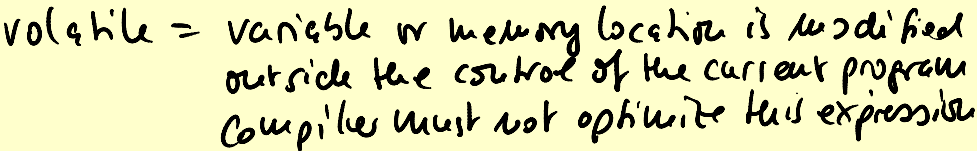 volatile = variable or memory location is modified
outside the control of the current program
compiler must not optimize this expression